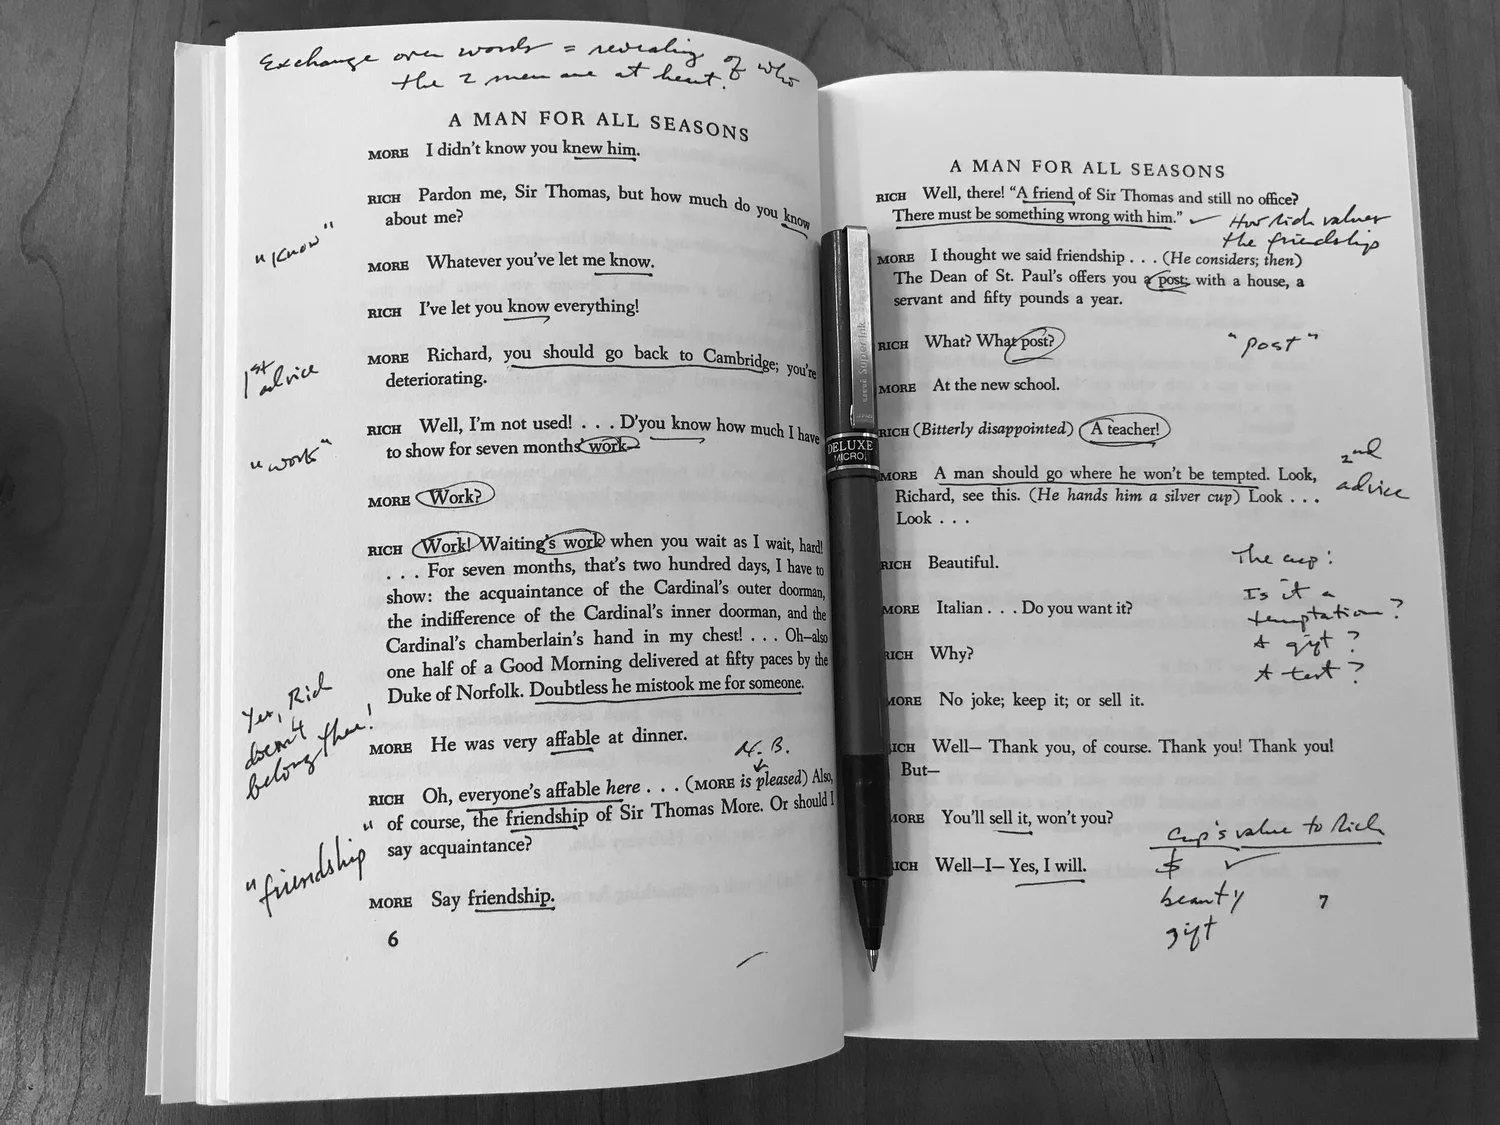 Exchange over words = revealing of who
the 2 men are at heart.
A MAN FOR ALL SEASONS
MORE I didn't know you knew him.
RICH Pardon me, Sir Thomas, but how much do you know
about me?
"Know"
MORE Whatever you've let me know.
RICH I've let you know everything!
MORE Richard, you should go back to Cambridge; you're
deteriorating.
1st
advice
RICH Well, I'm not used! . . . D'you know how much I have
to show for seven months' work—
"work"
MORE Work?
RICH Work! Waiting's work when you wait as I wait, hard!
. . . For seven months, that's two hundred days, I have to
show: the acquaintance of the Cardinal's outer doorman,
the indifference of the Cardinal's inner doorman, and the
Cardinal's chamberlain's hand in my chest! . . . Oh—also
one half of a Good Morning delivered at fifty paces by the
Duke of Norfolk. Doubtless he mistook me for someone.
Yes, Rich
doesn't
belong there!
MORE He was very affable at dinner.
N.B.
RICH Oh, everyone's affable here . . . (MORE is pleased) Also,
of course, the friendship of Sir Thomas More. Or should I
say acquaintance?
"friendship"
MORE Say friendship.
6
A MAN FOR ALL SEASONS
RICH Well, there! "A friend of Sir Thomas and still no office?
There must be something wrong with him."
How Rich values
the friendship
MORE I thought we said friendship . . . (He considers; then)
The Dean of St. Paul's offers you a post; with a house, a
servant and fifty pounds a year.
RICH What? What post?
"post"
MORE At the new school.
RICH (Bitterly disappointed) A teacher!
MORE A man should go where he won't be tempted. Look,
Richard, see this. (He hands him a silver cup) Look . . .
Look . . .
2nd
advice
RICH Beautiful.
MORE Italian . . . Do you want it?
RICH Why?
The cup:
Is it a
temptation?
A gift?
A test?
MORE No joke; keep it; or sell it.
RICH Well— Thank you, of course. Thank you! Thank you!
But—
MORE You'll sell it, won't you?
RICH Well—I— Yes, I will.
Cup's value to Rich
$ ✓
beauty
gift
7
uni Super Ink
DELUXE
MICRO